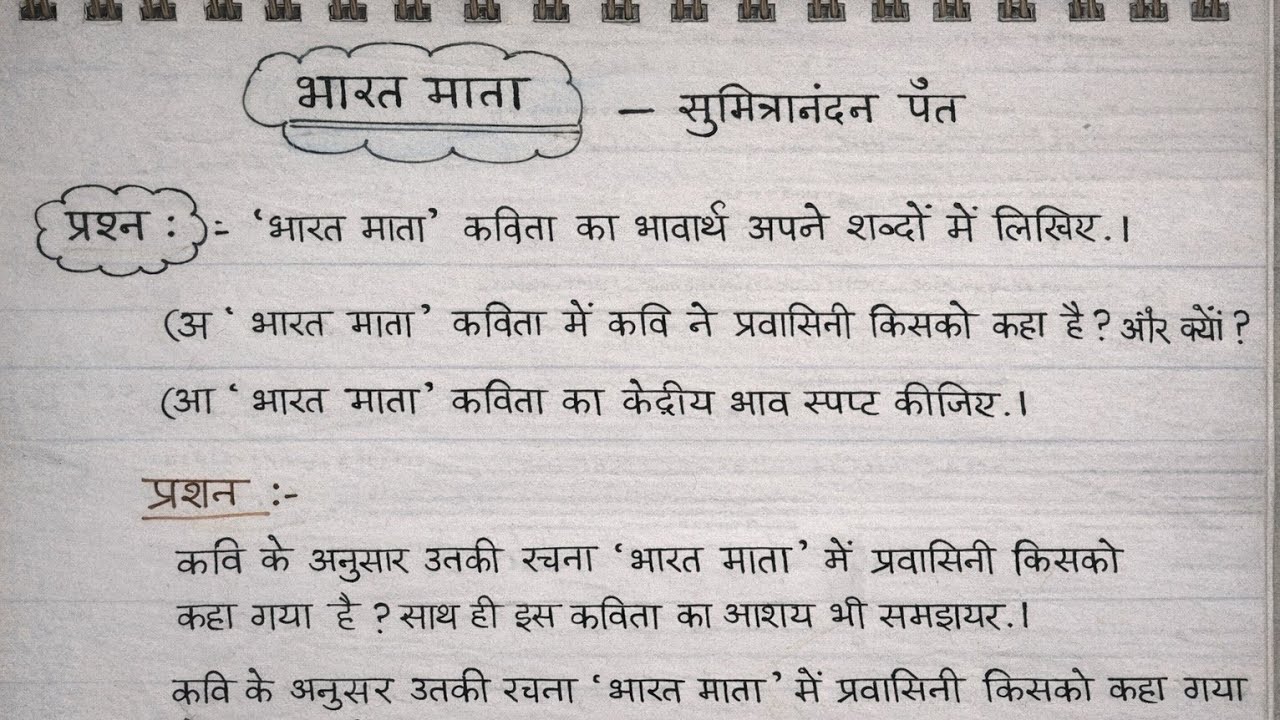 भारत माता — सुमित्रानंदन पँत
प्रश्न : := 'भारत माता' कविता का भावार्थ अपने शब्दों में लिखिए.।
(अ 'भारत माता' कविता में कवि ने प्रवासिनी किसको कहा है? और क्यों?
(आ 'भारत माता' कविता का केद्रीय भाव स्पप्ट कीजिए.।
प्रशन :-
कवि के अनुसार उतकी रचना 'भारत माता' में प्रवासिनी किसको
कहा गया है? साथ ही इस कविता का आशय भी समझायर.।
कवि के अनुसर उतकी रचना 'भारत माता' में प्रवासिनी किसको कहा गया